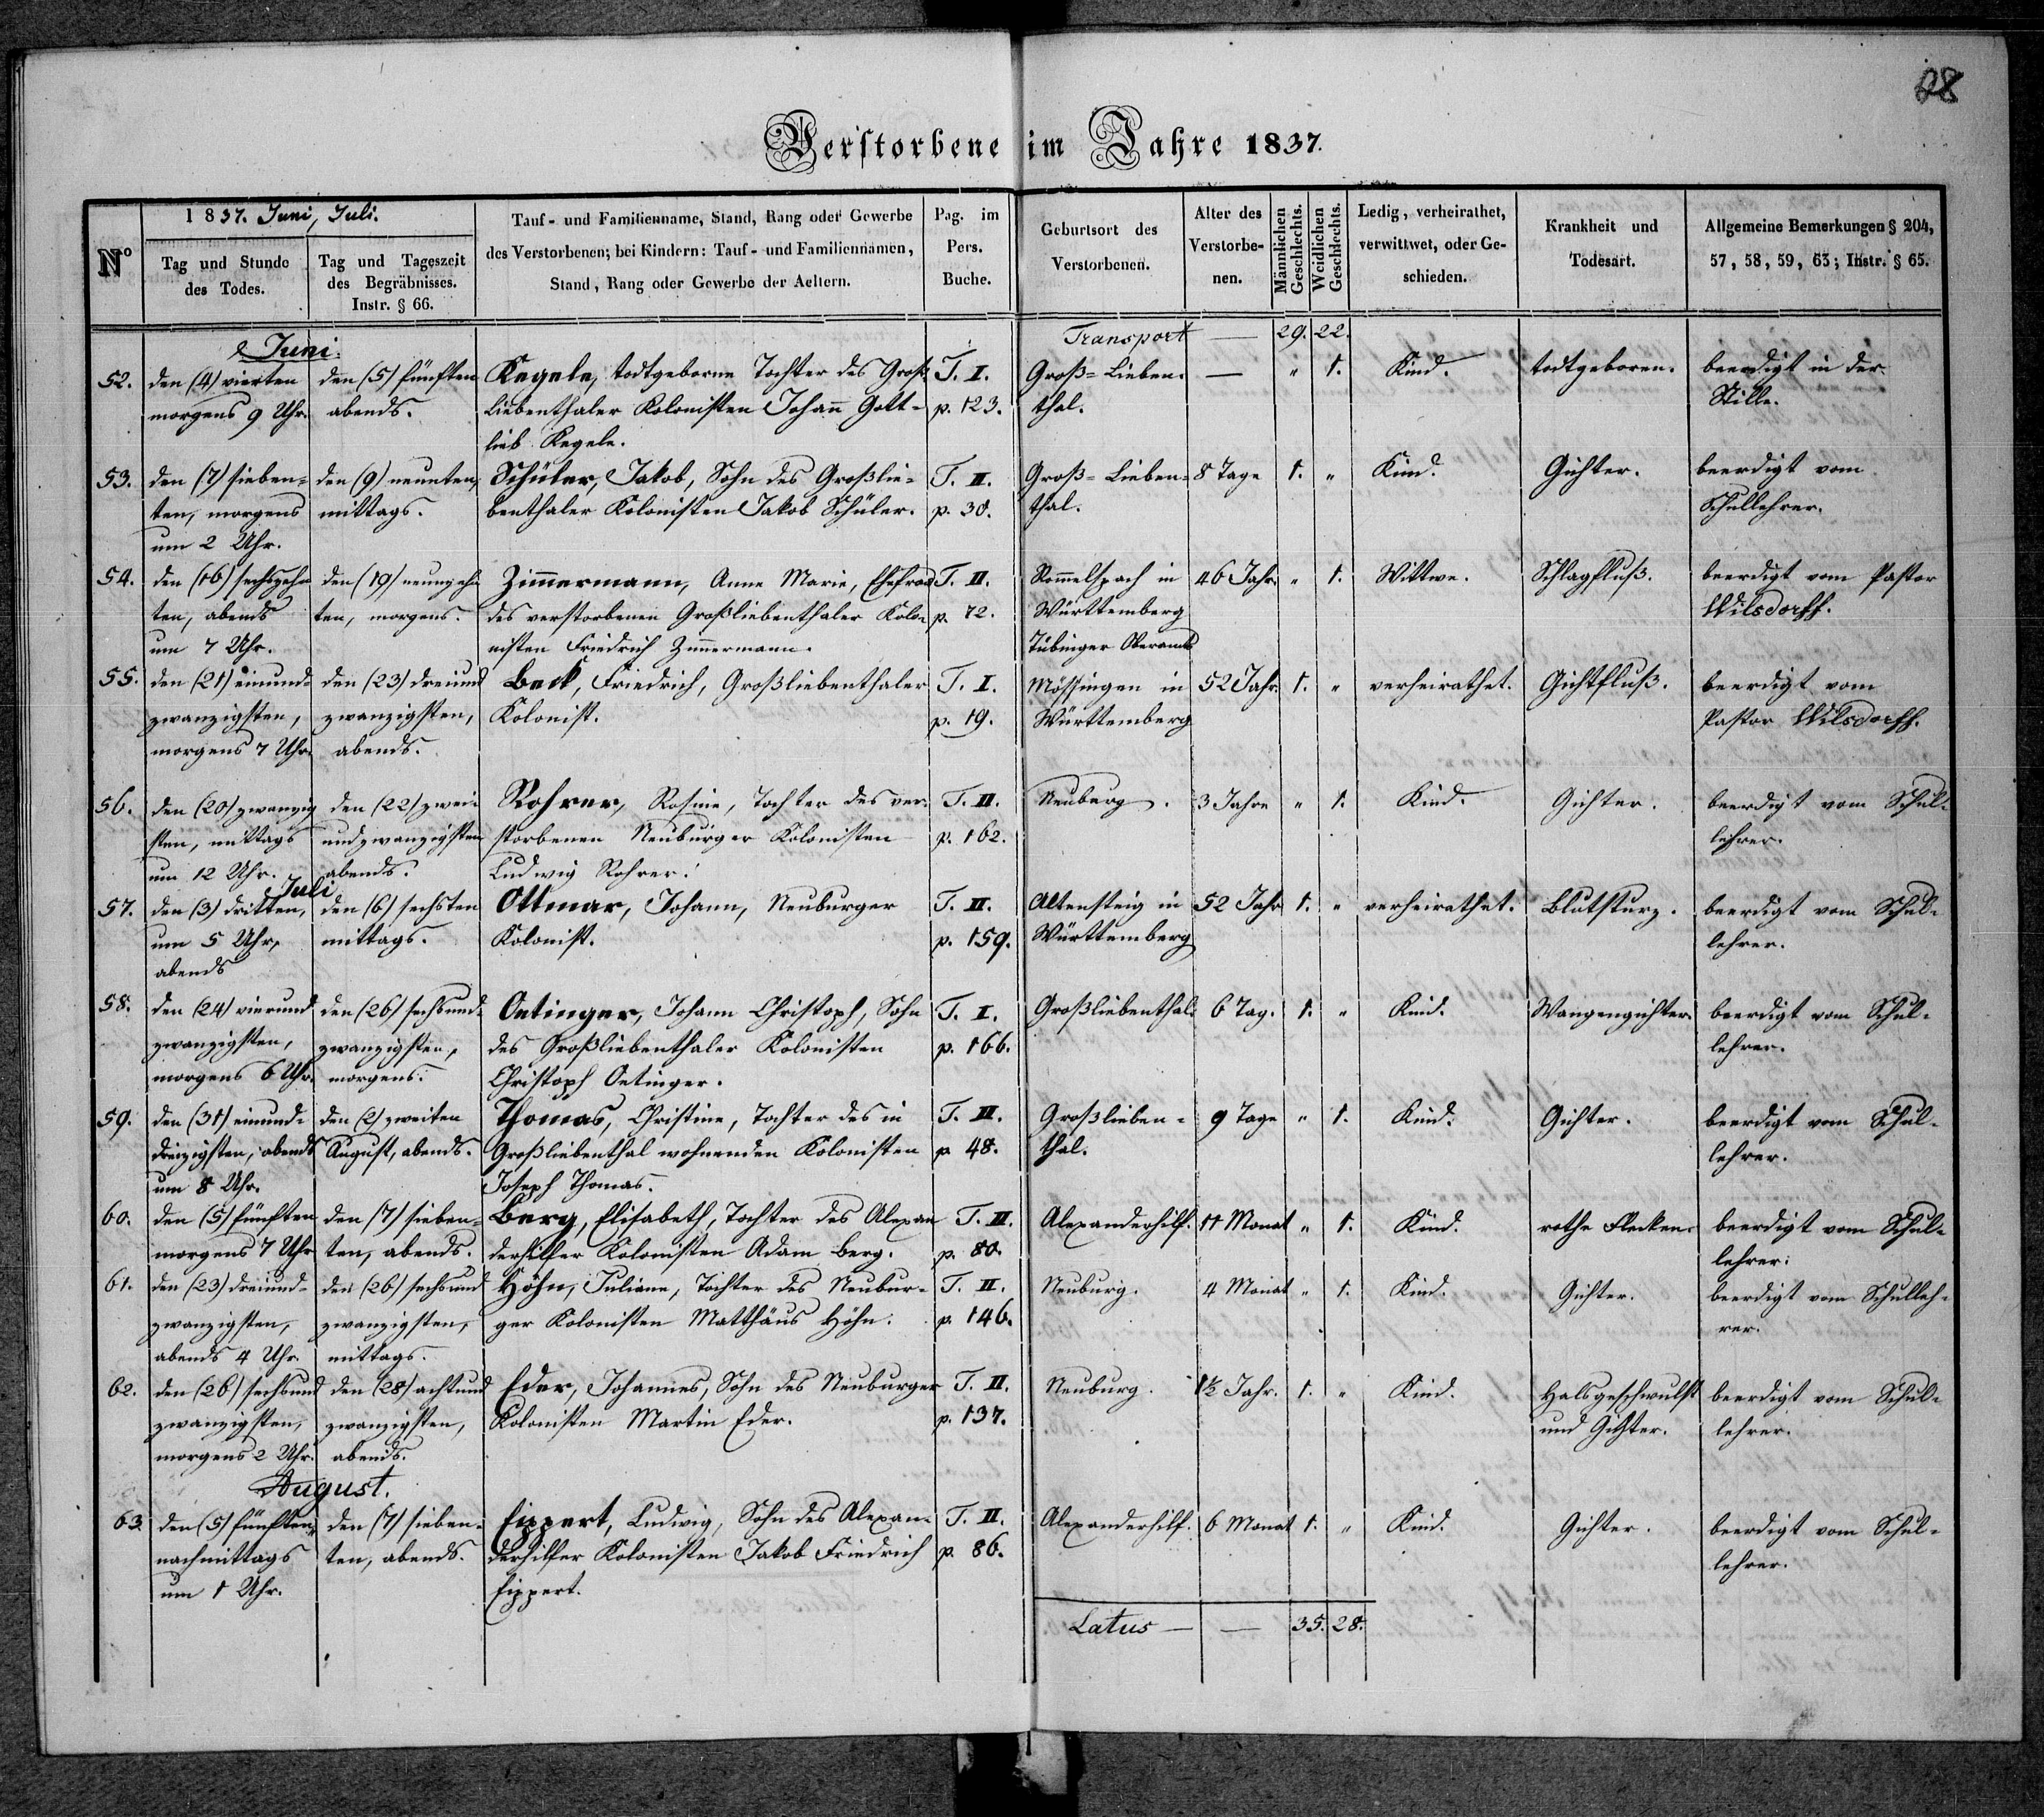 68
Verstorbene im Jahre 1837.
No
1837. Juni, Juli.
Tag und Stunde
des Todes.
Tag und Tageszeit
des Begräbnisses.
Instr. § 66.
Tauf- und Familienname, Stand, Rang oder Gewerbe
des Verstorbenen; bei Kindern: Tauf- und Familiennamen,
Stand, Rang oder Gewerbe der Aeltern.
Pag. im
Pers.
Buche.
Geburtsort des
Verstorbenen.
Alter des
Verstorbe-
nen.
Männlichen
Geschlechts.
Weidlichen
Geschlechts.
Ledig, verheirathet,
verwittwet, oder Ge-
schieden.
Krankheit und
Todesart.
Allgemeine Bemerkungen § 204,
57, 58, 59, 63; Instr. § 65.
Juni.
Transport — 29. 22.
52. den (4) vierten den (5) fünften Kegele, todtgeborne Tochter des Groß- T. I. Groß-Lieben- — " 1. Kind. todtgeboren. beerdigt in der
morgens 9 Uhr. abends. liebenthaler Kolonisten Johann Gott- p. 123. thal. Stille.
lieb Kegele.
53. den (7) sieben- den (9) neunten, Schüler, Jakob, Sohn des Großlie- T. II. Groß-Lieben- 8 Tage 1. " Kind. Gichter. beerdigt vom
ten, morgens mittags. benthaler Kolonisten Jakob Schüler. p. 30. thal. Schullehrer.
um 2 Uhr.
54. den (16) sechszehn den (19) neunzehn Zimmermann, Anne Marie, Ehefrau T. II. Rommelspach in 46 Jahr. " 1. Wittwe. Schlagfluß. beerdigt vom Pastor
ten, abends ten, morgens. des verstorbenen Großliebenthaler Kolo- p. 72. Württemberg Wilsdorff.
um 7 Uhr. nisten Friedrich Zimmermann. Tübinger Oberamts
55. den (21) einund- den (23) dreiund Beck, Friedrich, Großliebenthaler T. I. Mössingen in 52 Jahr. 1. " verheirathet. Gichtfluß. beerdigt vom
zwanzigsten, zwanzigsten, Kolonist. p. 19. Württemberg Pastor Wilsdorff.
morgens 7 Uhr. abends.
56. den (20) zwanzig den (22) zwei- Rohrer, Rosine, Tochter des ver- T. II. Neuburg. 3 Jahre " 1. Kind. Gichter. beerdigt vom Schul-
sten, mittags undzwanzigsten storbenen Neuburger Kolonisten p. 162. lehrer.
um 12 Uhr. abends. Ludwig Rohrer.
Juli
57. den (3) dritten, den (6) sechsten Ottmar, Johann, Neuburger T. II. Altensteig in 52 Jahr 1. " verheirathet. Blutsturz. beerdigt vom Schul-
um 5 Uhr, mittags. Kolonist. p. 159. Württemberg lehrer.
abends
58. den (24) vierund den (26) sechsund- Oetinger, Johann Christoph, Sohn T. I. Großliebenthal. 6 Tag. 1. " Kind. Wangengichter. beerdigt vom Schul-
zwanzigsten, zwanzigsten, des Großliebenthaler Kolonisten p. 166. lehrer.
morgens 6 Uhr. morgens. Christoph Oetinger.
59. den (31) einund- den (2) zweiten Thomas, Christine, Tochter des in T. II. Großlieben- 9 Tage " 1. Kind. Gichter. beerdigt vom Schul-
dreizigsten, abends August, abends. Großliebenthal wohnenden Kolonisten p. 48. thal. lehrer.
um 8 Uhr. Joseph Thomas.
60. den (5) fünften den (7) sieben- Berg, Elisabeth, Tochter des Alexan T. II. Alexanderhilf. 11 Monat " 1. Kind. rothe Flecken. beerdigt vom Schul-
morgens 7 Uhr ten, abends. derhilfer Kolonisten Adam Berg. p. 80. lehrer.
61. den (23) dreiund- den (26) sechsund Höhn, Juliane, Tochter des Neubur- T. II. Neuburg. 4 Monat " 1. Kind. Gichter. beerdigt vom Schulleh-
zwanzigsten, zwanzigsten, ger Kolonisten Matthäus Höhn. p. 146. rer.
abends 4 Uhr. mittags.
62. den (26) sechsund den (28) achtund Eder, Johannes, Sohn des Neuburger T. II. Neuburg. 1½ Jahr. 1. " Kind. Halsgeschwulst beerdigt vom Schul-
zwanzigsten, zwanzigsten, Kolonisten Martin Eder. p. 137. und Gichter. lehrer.
morgens 2 Uhr. abends.
August.
63. den (5) fünften, den (7) sieben- Fippert, Ludwig, Sohn des Alexan- T. II. Alexanderhilf. 6 Monat 1. " Kind. Gichter. beerdigt vom Schul-
nachmittags ten, abends. derhilfer Kolonisten Jakob Friedrich p. 86. lehrer.
um 1 Uhr. Fippert.
Latus — — 35. 28.